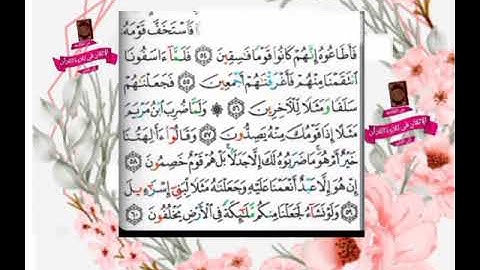 فَٱسْتَخَفَّ قَوْمَهُۥ
فَأَطَاعُوهُ إِنَّهُمْ كَانُوا۟ قَوْمًا فَٰسِقِينَ ٥٤ فَلَمَّآ ءَاسَفُونَا
ٱنتَقَمْنَا مِنْهُمْ فَأَغْرَقْنَٰهُمْ أَجْمَعِينَ ٥٥ فَجَعَلْنَٰهُمْ
سَلَفًا وَمَثَلًا لِّلْءَاخِرِينَ ٥٦ ۞ وَلَمَّا ضُرِبَ ٱبْنُ مَرْيَمَ
مَثَلًا إِذَا قَوْمُكَ مِنْهُ يَصِدُّونَ ٥٧ وَقَالُوٓا۟ ءَأَٰلِهَتُنَا
خَيْرٌ أَمْ هُوَ مَا ضَرَبُوهُ لَكَ إِلَّا جَدَلًۢا بَلْ هُمْ قَوْمٌ خَصِمُونَ ٥٨
إِنْ هُوَ إِلَّا عَبْدٌ أَنْعَمْنَا عَلَيْهِ وَجَعَلْنَٰهُ مَثَلًا لِّبَنِىٓ إِسْرَٰٓءِيلَ
٥٩ وَلَوْ نَشَآءُ لَجَعَلْنَا مِنكُم مَّلَٰٓئِكَةً فِى ٱلْأَرْضِ يَخْلُفُونَ ٦٠